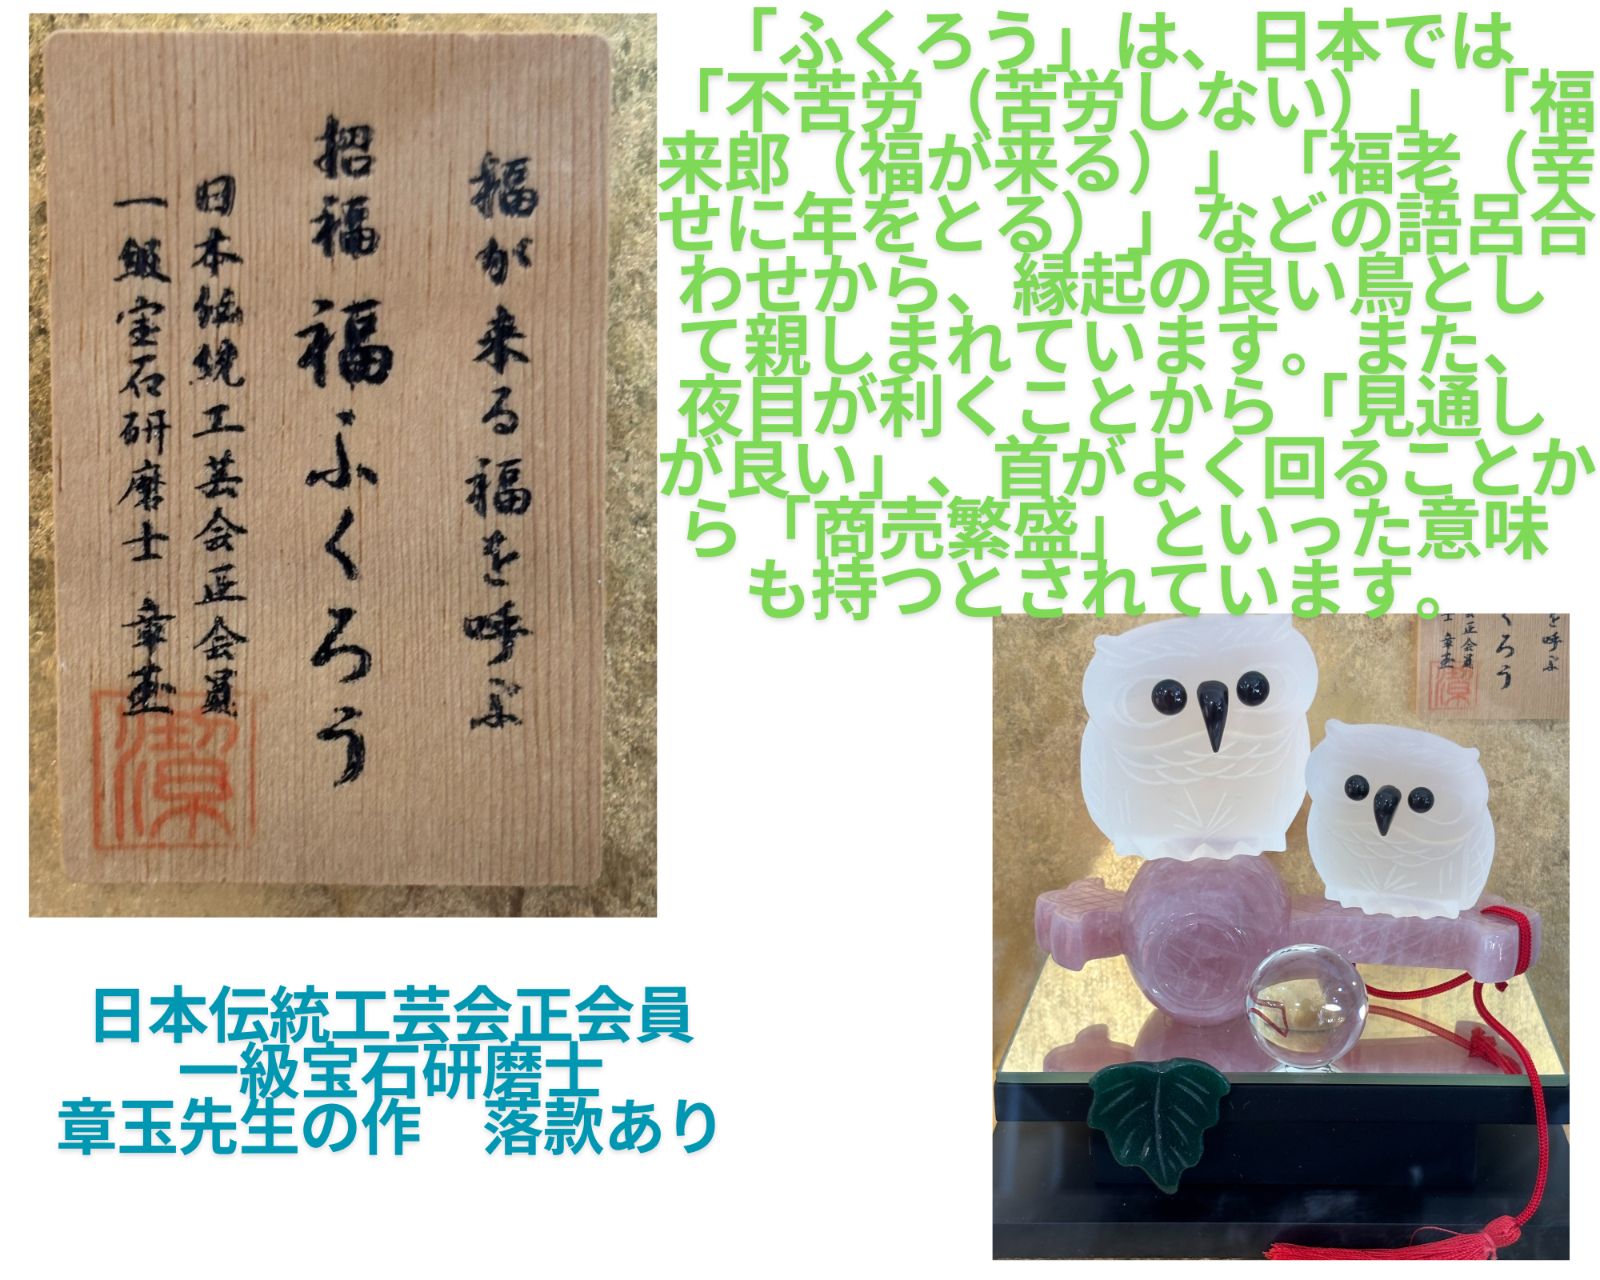 福が来る福を呼ぶ
招福 福ふくろう
日本伝統工芸会正会員
一級宝石研磨士 章玉
「ふくろう」は、日本では
「不苦労（苦労しない）」「福
来郎（福が来る）」「福老（幸
せに年をとる）」などの語呂合
わせから、縁起の良い鳥とし
て親しまれています。また、
夜目が利くことから「見通し
が良い」、首がよく回ることか
ら「商売繁盛」といった意味
も持つとされています。
くろう
を呼ぶ
正会員
士 章玉
日本伝統工芸会正会員
一級宝石研磨士
章玉先生の作　落款あり